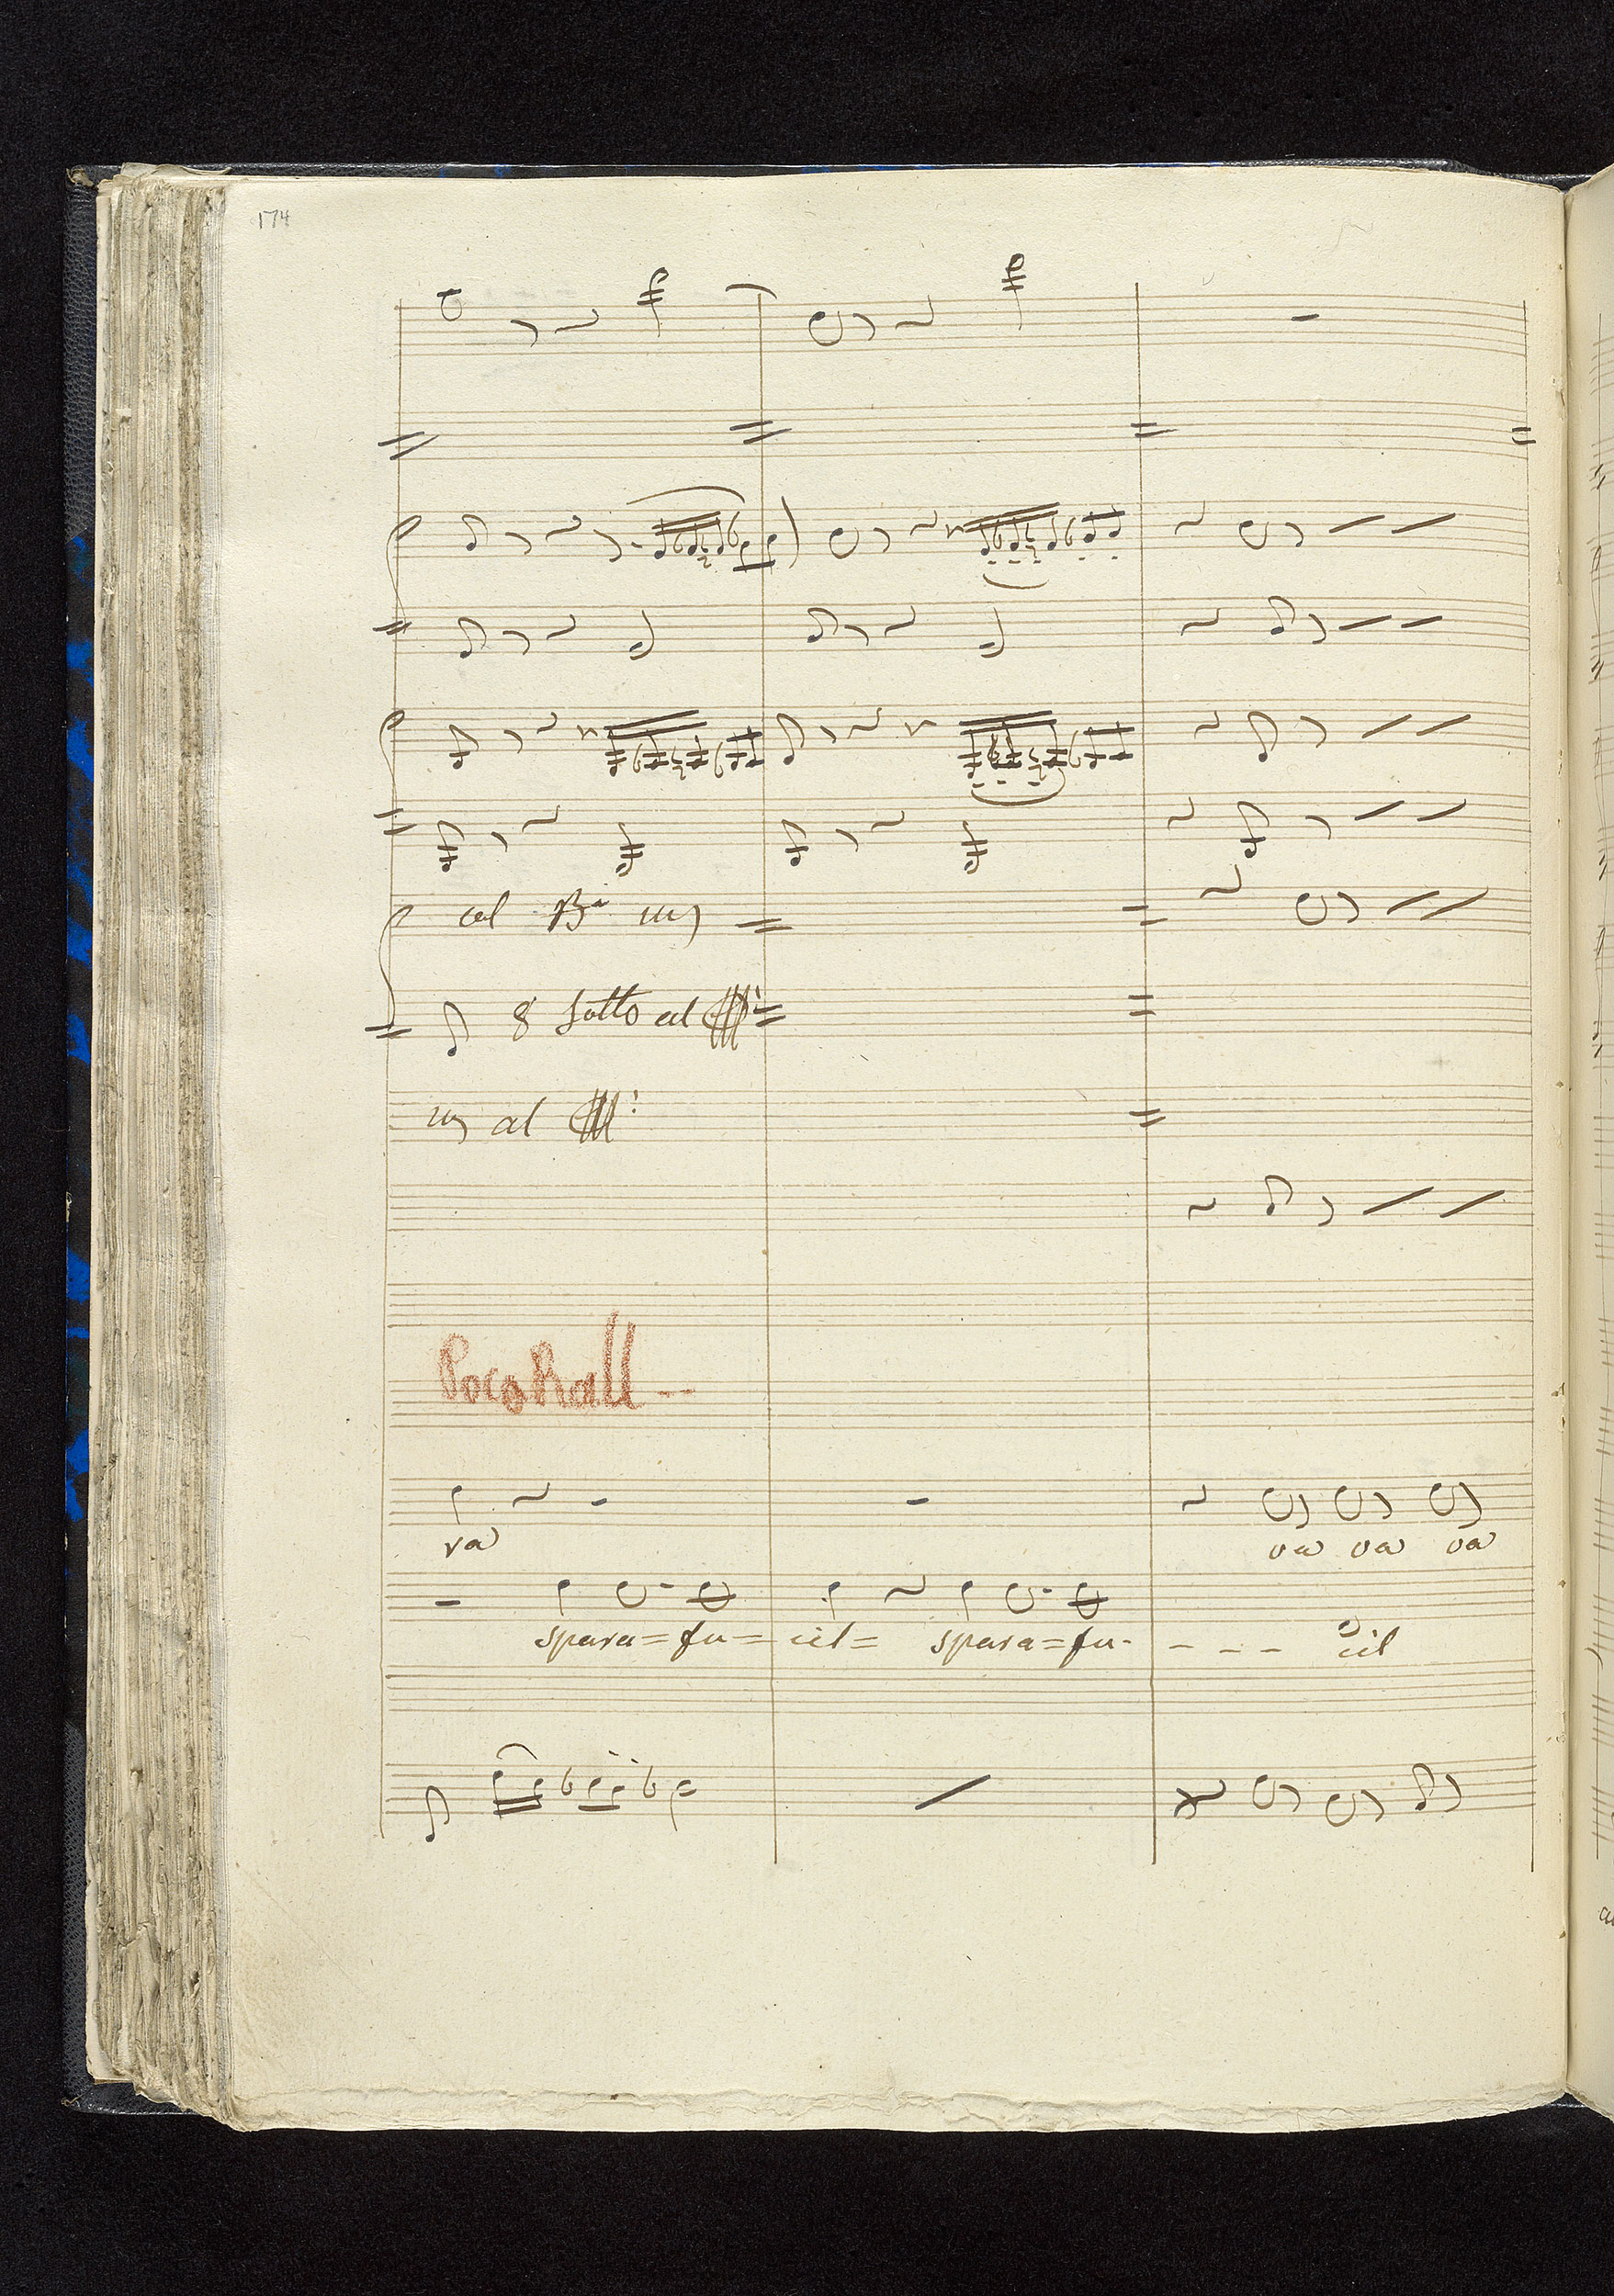 174
col Bi un
8 sotto al
un al
Poco Rall --
va
va va va
spara=fu=cil= spara=fu- - - - cil